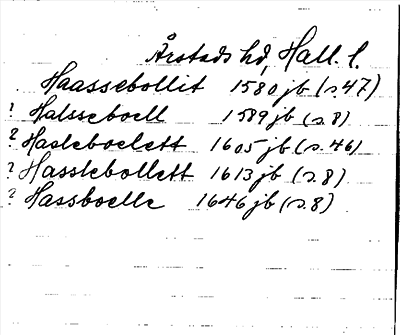 Årstads hd, Hall. l.
Haassebollit 1580 jb (s.47)
? Halsseboell 1589 jb (s.8)
? Hasleboelett 1605 jb (s.46)
? Hasslebollett 1613 jb (s.8)
? Hassboelle 1646 jb (s.8)